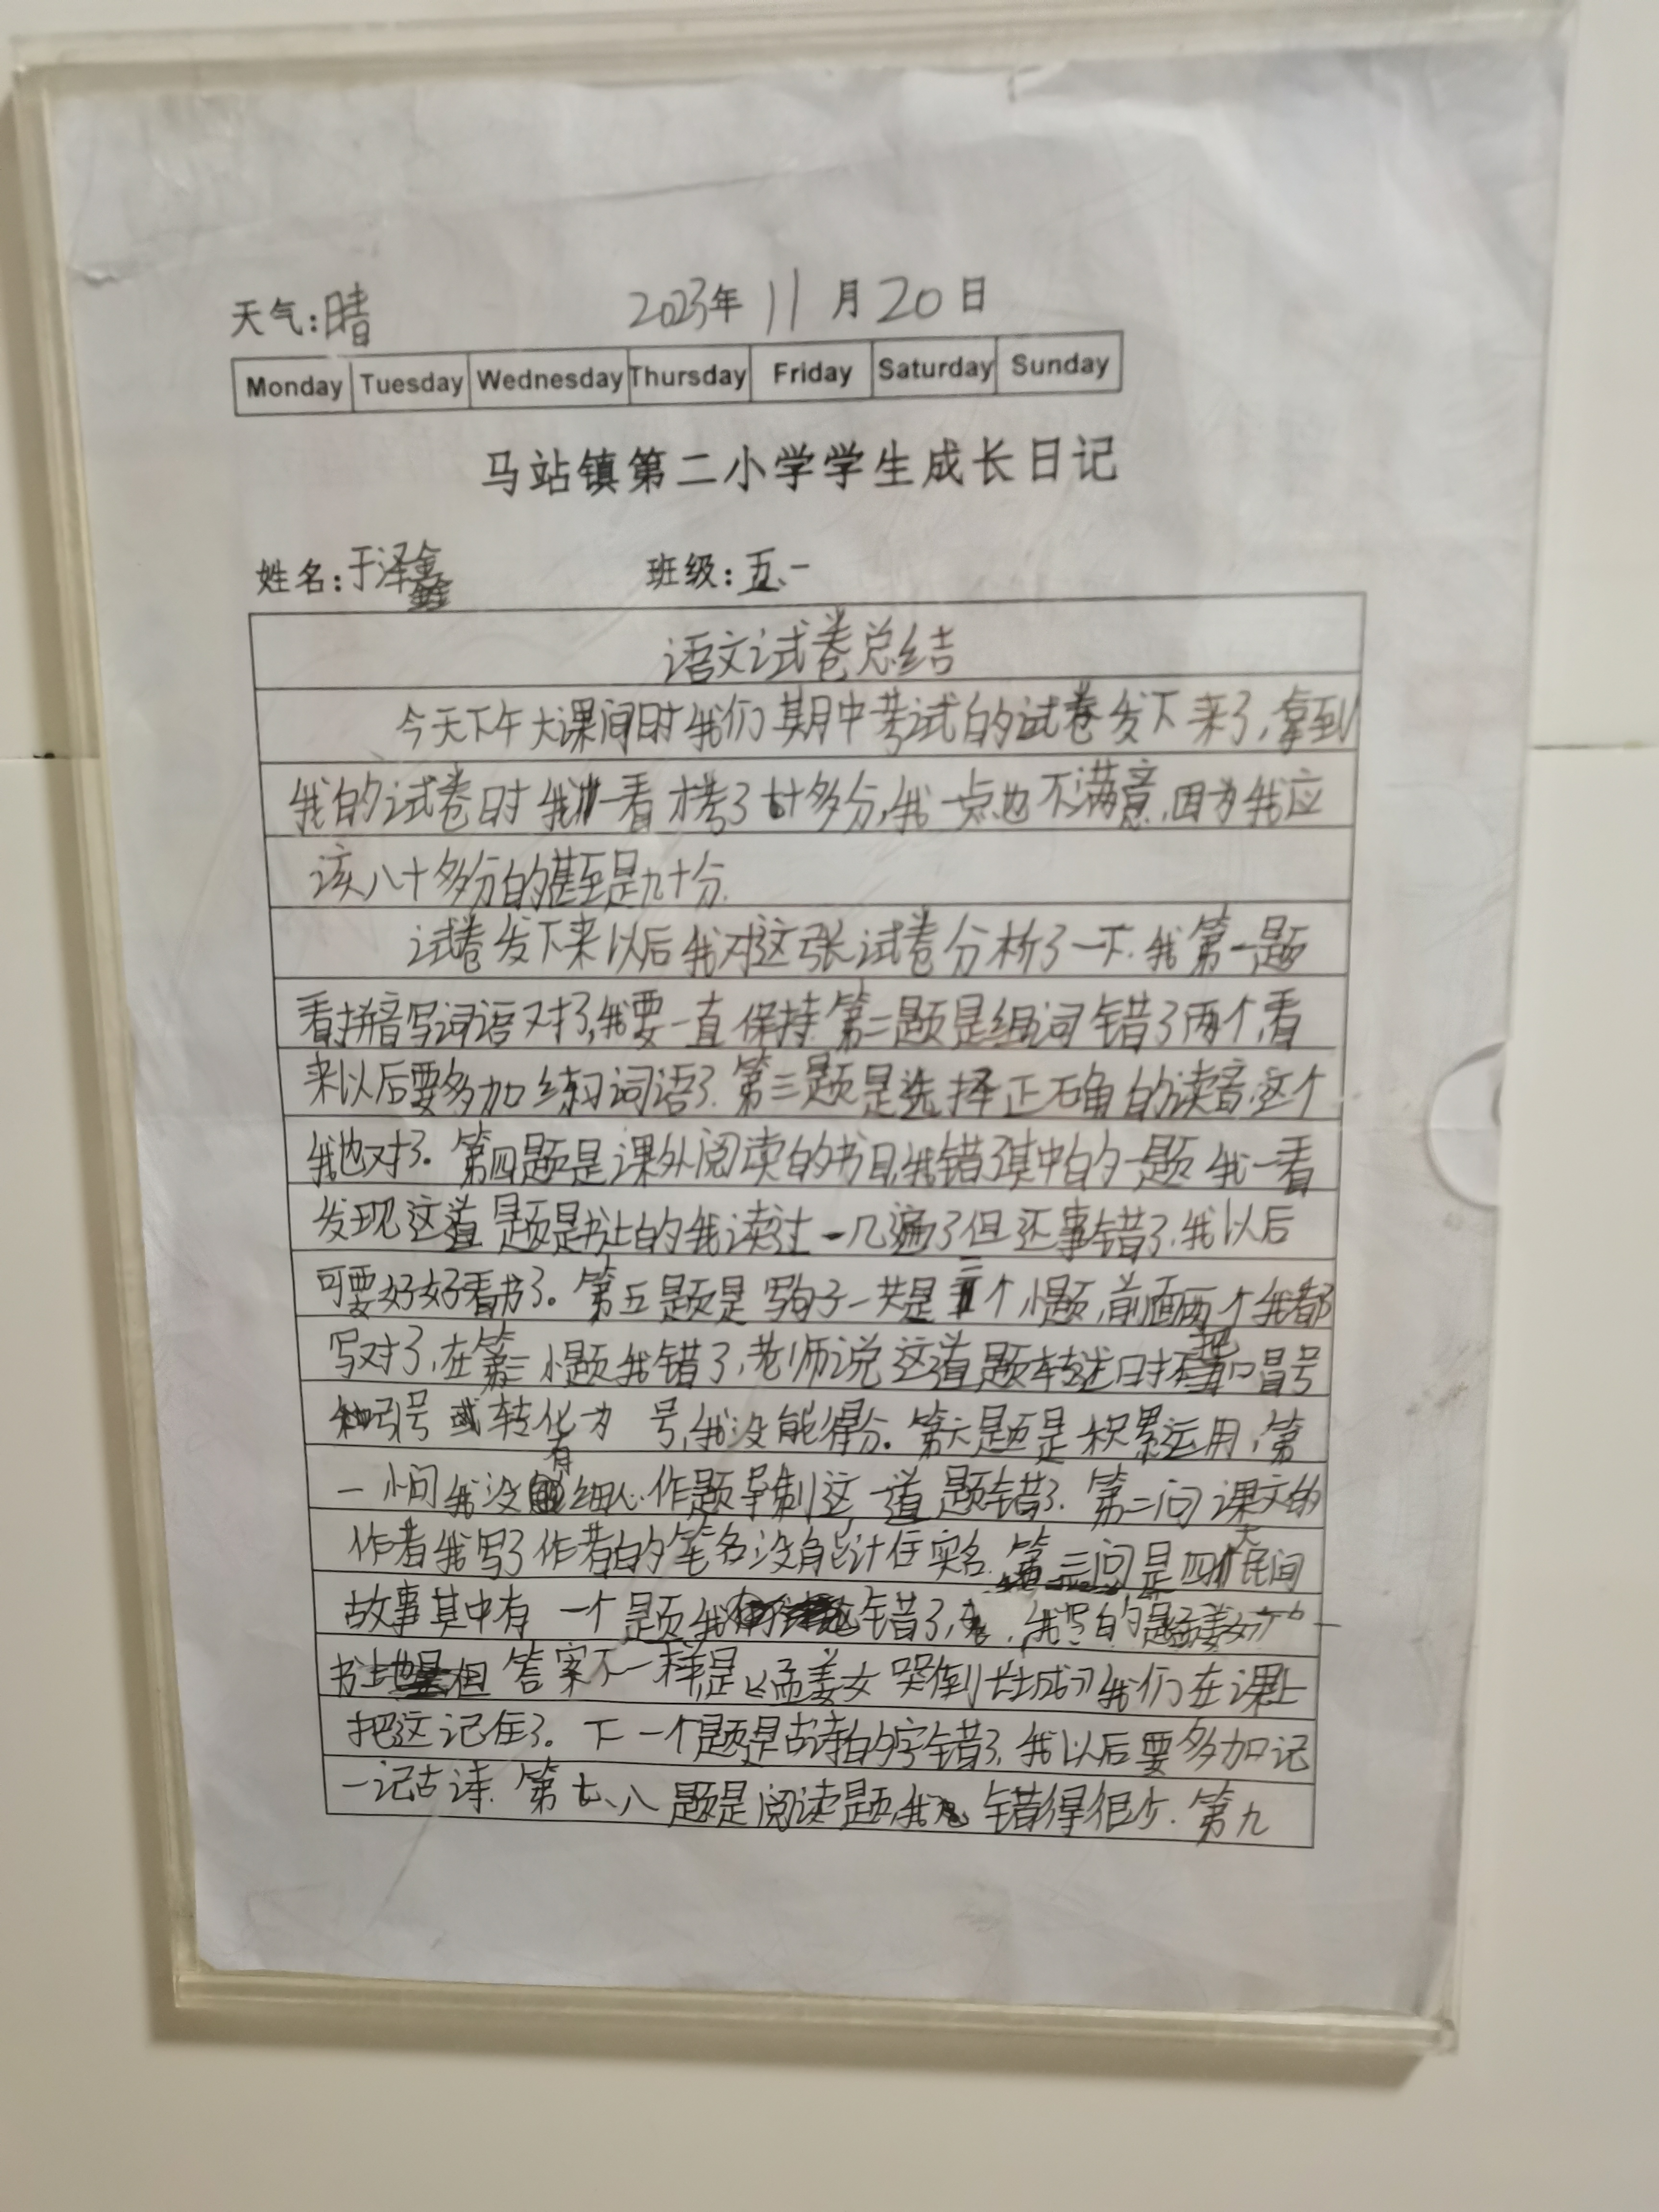 天气:晴 2023年 11月20日
Monday Tuesday Wednesday Thursday Friday Saturday Sunday
马站镇第二小学学生成长日记
姓名:于泽鑫 班级:五、一
语文试卷总结
今天下午大课间时我们期中考试的试卷发下来了,拿到
我的试卷时我一看才考了七十多分,我一点也不满意,因为我应
该八十多分的甚至是九十分.
试卷发下来以后我对这张试卷分析了一下.我第一题
看拼音写词语对了,我要一直保持.第二题是组词错了两个,看
来以后要多加练习词语了.第三题是选择正确的读音,这个
我也对了。第四题是课外阅读的书目,我错了其中的一题 我一看
发现这道题是书上的我读过一几遍了但还事错了.我以后
可要好好看书了。第五题是写句子一共是三个小题,前面两个我都
写对了,在第三小题我错了,老师说这道题转述时把冒号
和引号 或转化为 号,我没能得分。第六题是积累运用,第
一小问我没有细心作题导制这一道题错了.第二问课文的
作者我写了作者的笔名没能记住实名.第三问是四大民间
故事其中有一个题我错了,我写的是孟姜女
书上 但答案不一样,是《孟姜女哭倒长城》我们在课上
把这记住了。下一个题是古诗的字错了,我以后要多加记
一记古诗.第七、八题是阅读题,我错得很少.第九